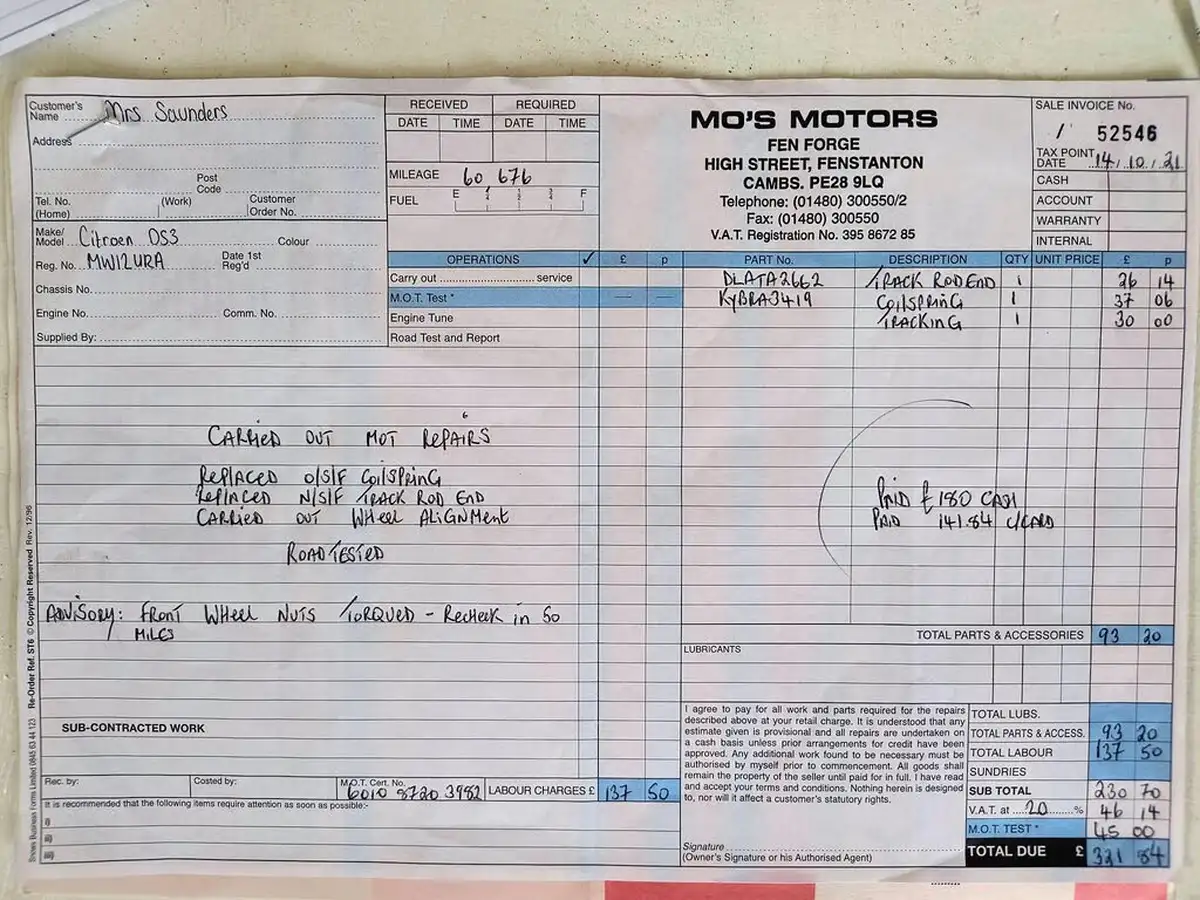 Customer's Name Mrs Saunders
Address
Post Code
Tel. No. (Home) (Work) Customer Order No.
Make/ Model Citroen DS3 Colour
Reg. No. MW12URA Date 1st Reg'd
Chassis No.
Engine No. Comm. No.
Supplied By:
RECEIVED REQUIRED
DATE TIME DATE TIME
MILEAGE 60 676
FUEL E 1/4 1/2 3/4 F
MO'S MOTORS
FEN FORGE
HIGH STREET, FENSTANTON
CAMBS. PE28 9LQ
Telephone: (01480) 300550/2
Fax: (01480) 300550
V.A.T. Registration No. 395 8672 85
SALE INVOICE No.
/ 52546
TAX POINT DATE 14/10/21
CASH
ACCOUNT
WARRANTY
INTERNAL
OPERATIONS ✓ £ p
Carry out service
M.O.T. Test *
Engine Tune
Road Test and Report
PART No. DESCRIPTION QTY UNIT PRICE £ p
DLATA2662 TRACK ROD END 1 26 14
KYBRA3419 COILSPRING 1 37 06
TRACKING 1 30 00
CARRIED OUT MOT REPAIRS
REPLACED O/S/F COILSPRING
REPLACED N/S/F TRACK ROD END
CARRIED OUT WHEEL ALIGNMENT
ROADTESTED
ADVISORY: FRONT WHEEL NUTS TORQUED - RECHECK in 50
MILES
PAID £180 CASH
PAID 141.84 C/CARD
TOTAL PARTS & ACCESSORIES 93 20
LUBRICANTS
SUB-CONTRACTED WORK
Rec. by: Costed by: M.O.T. Cert. No. 6010 8720 3982 LABOUR CHARGES £ 137 50
It is recommended that the following items require attention as soon as possible:-
i)
ii)
iii)
I agree to pay for all work and parts required for the repairs
described above at your retail charge. It is understood that any
estimate given is provisional and all repairs are undertaken on
a cash basis unless prior arrangements for credit have been
approved. Any additional work found to be necessary must be
authorised by myself prior to commencement. All goods shall
remain the property of the seller until paid for in full. I have read
and accept your terms and conditions. Nothing herein is designed
to, nor will it affect a customer's statutory rights.
Signature
(Owner's Signature or his Authorised Agent)
TOTAL LUBS.
TOTAL PARTS & ACCESS. 93 20
TOTAL LABOUR 137 50
SUNDRIES
SUB TOTAL 230 70
V.A.T. at 20 % 46 14
M.O.T. TEST * 45 00
TOTAL DUE £ 321 84
Re-Order Ref. ST6 © Copyright Reserved Rev. 12/96
Business Forms Limited 0845 63 44 123